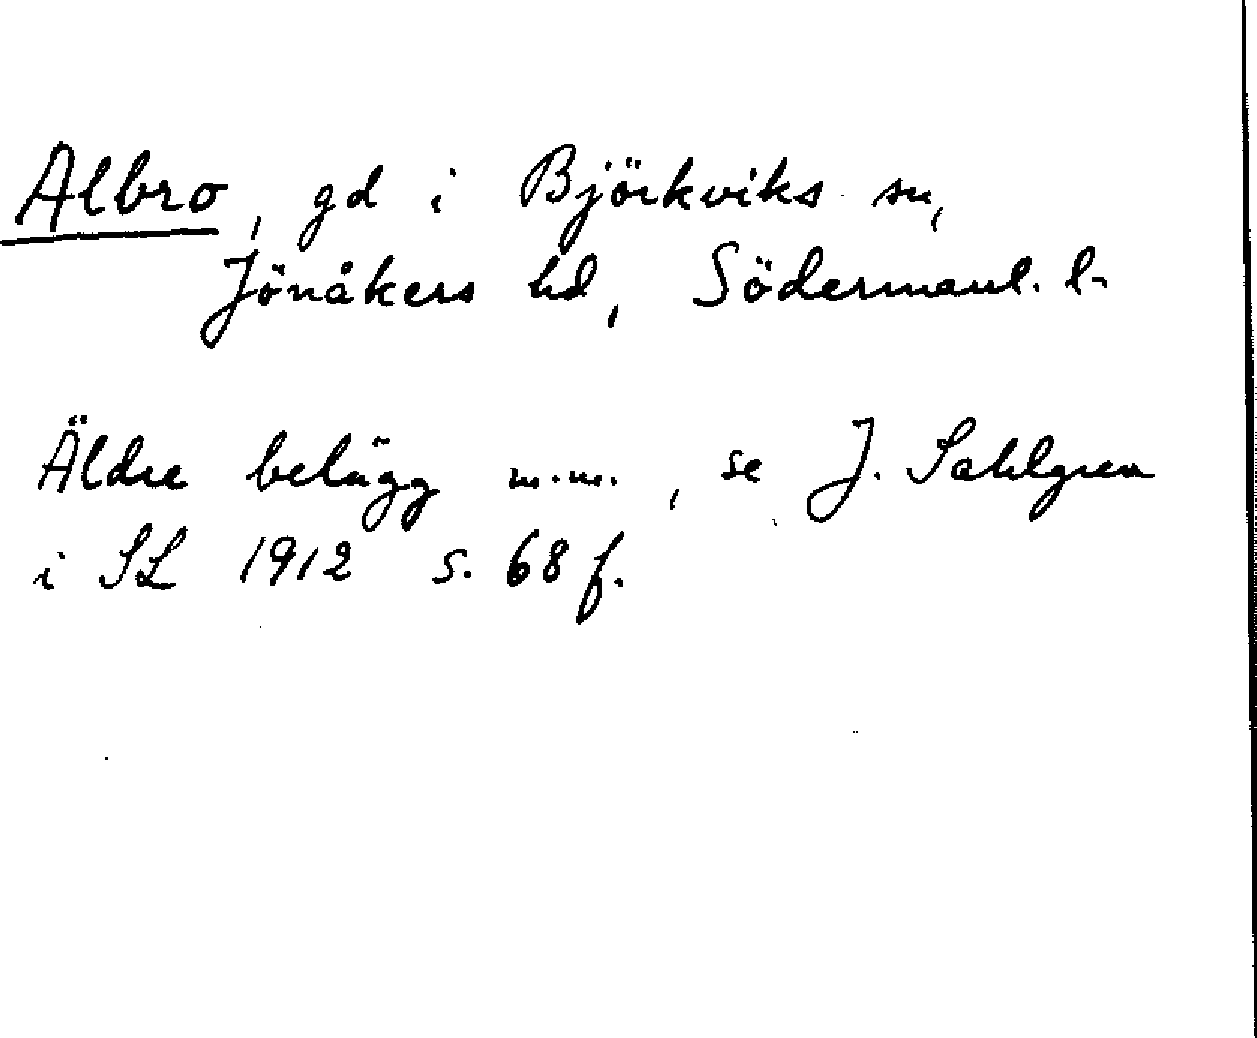 Albro, gd i Björkviks sn,
Jönåkers hd, Södermanl. l.
Äldre belägg m.m., se J. Sahlgren
i SL 1912 s. 68 f.